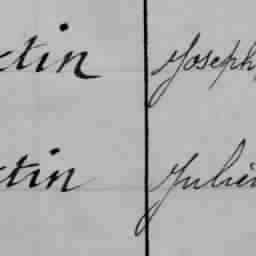 ctin Joseph
ctin Julien